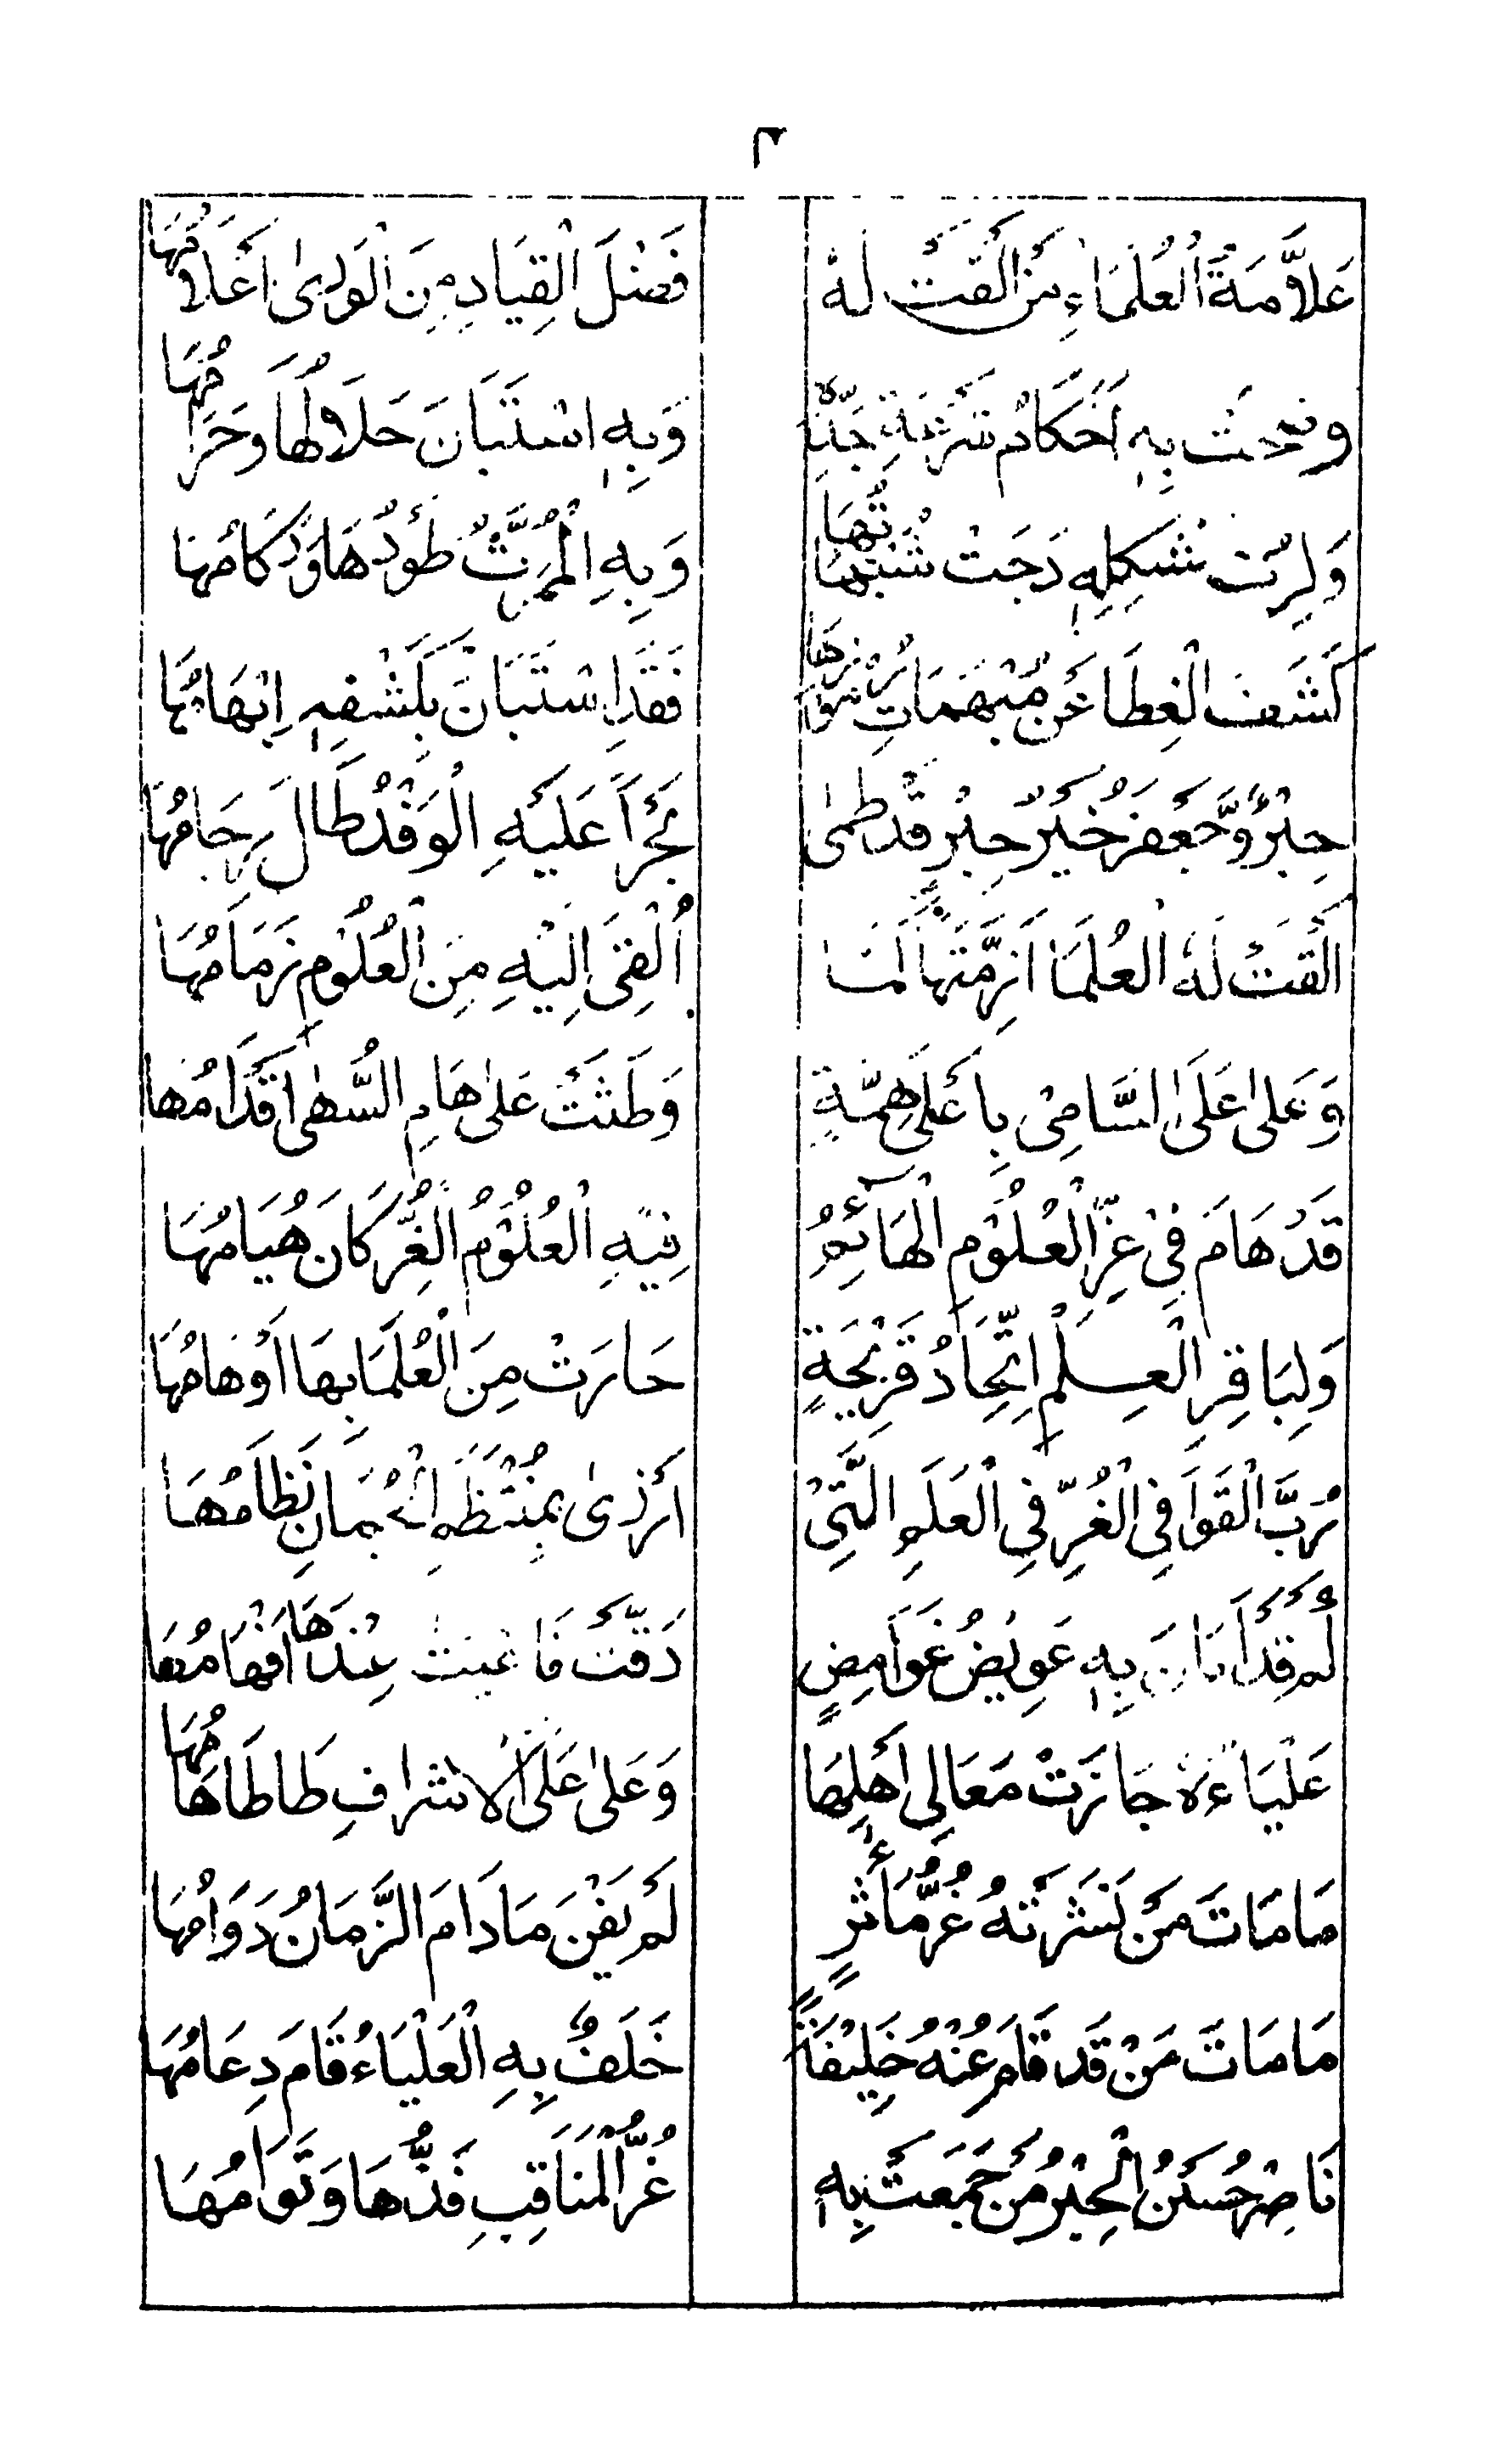 ٣
عَلَّامَةُ الْعُلَمَاءِ مَنْ اَلْقَتْ لَهُ
فَضْلَ الْقِيَادِ مِنَ الْوَرٰى اَعْلَامُهَا
وضحت بِهٖ اَحْكَامُ شِرْعَةِ جَدِّهٖ
وَبِهٖ اسْتَبَانَ حَلَالُهَا وَحَرَامُهَا
وَلِرُبَّ مُشْكِلَةٍ دَجَتْ شُبُهَاتُهَا
وَبِهِ طَوْدُهَا وَرُكَامُهَا
كَشَفَ الْغِطَا عَنْ مُبْهَمَاتِ رُمُوْزِهَا
فَقَدِ اسْتَبَانَ بِكَشْفِهٖ اِبْهَامُهَا
حِبْرٌ وَّجَعْفَرُ خَيْرُ حِبْرٍ قَدْ طَمٰى
بَحْرًا عَلَيْهِ الْوَفْدُ طَالَ زِحَامُهَا
اَلْقَتْ لَهُ الْعُلَمَا اَزِمَّتَهَا لَمَا
اُلْقِيَ اِلَيْهِ مِنَ الْعُلُوْمِ زِمَامُهَا
وَعَلىٰ عَلَى السَّامِيْ بِاَعْلىٰ هِمَّةٍ
وَطَئَتْ عَلىٰ هَامِ السُّهٰى اَقْدَامُهَا
قَدْ هَامَ فِيْ غُرِّ الْعُلُوْمِ الْهَائِمُ
فِيْهِ الْعُلُوْمُ الْغُرُّ كَانَ هُيَامُهَا
وَلِبَاقِرِ الْعِلْمِ اتِّحَادُ قَرِيْحَةٍ
حَارَتْ مِنَ الْعُلَمَا بِهَا اَوْهَامُهَا
رُبَّ الْقَوَافِي الْغُرِّ فِي الْعَلَمِ الَّتِيْ
اَزْرٰى بِمُنْتَظَمِ الْجُمَانِ نِظَامُهَا
لَمْ قَدْ اَبَانَ بِهٖ عَوِيْصُ غَوَامِضٍ
دَقَّتْ فَاعْيَتْ عِنْدَهَا اَفْهَامُهَا
عَلْيَاءُهُ جَازَتْ مَعَالِي اَهْلِهَا
وَعَلىٰ عَلَى الْاَشْرَافِ طَاطَا هَامُهَا
مَا مَاتَ مَنْ نَشَرَتْهُ غُرُّ مَآثِرٍ
لَمْ يَفْنَ مَا دَامَ الزَّمَانُ دَوَامُهَا
مَا مَاتَ مَنْ قَدْ قَامَ عَنْهُ خَلِيْفَةً
خَلَفٌ بِهِ الْعَلْيَاءُ قَامَ دِعَامُهَا
نَاصِرْ حُسَيْنُ الْحِبْرُ مَنْ جُمِعَتْ بِهٖ
غُرُّ الْمَنَاقِبِ فَذُّهَا وَتَوَامُهَا